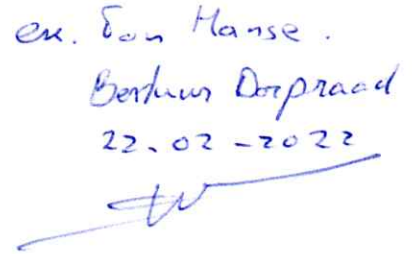 en. Ton Hanse.
Bestuur Dorpraad
22-02-2022